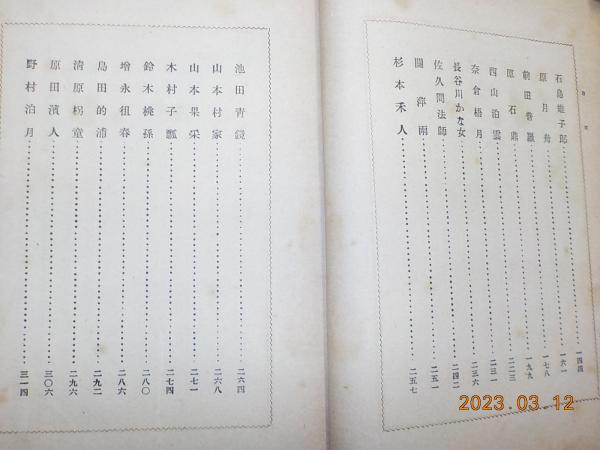 目次
石島雉子郎 一四四
原月舟 一六一
前田普羅 一七八
原石鼎 一九九
西山泊雲 二二三
奈倉梧月 二三一
長谷川かな女 二三六
佐久間法師 二四二
關萍雨 二五一
杉本禾人 二五七
池田青鏡 二六四
山本村家 二六八
山本杲采 二七一
木村子瓢 二七四
鈴木桃孫 二八〇
增永徂春 二八六
島田的浦 二九二
淸原枴童 二九六
原田濱人 三〇六
野村泊月 三一四
2023.03.12